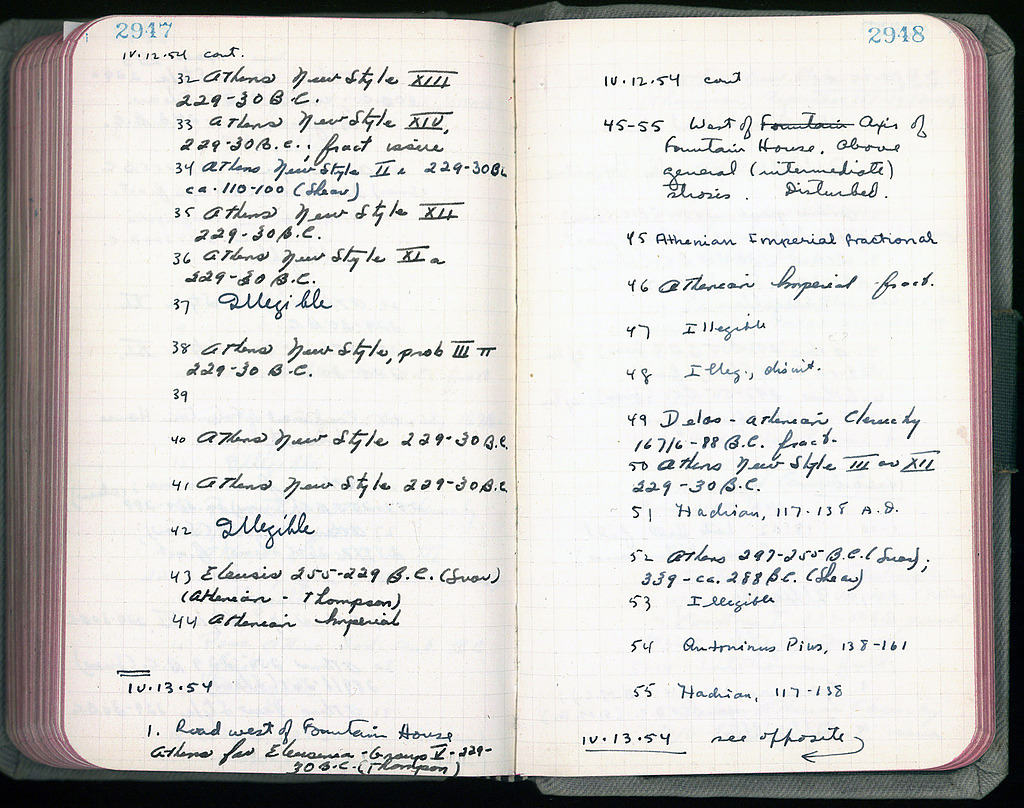 2947
IV.12.54 cont.
32 Athens New Style XIII
229-30 B.C.
33 Athens New Style XIV,
229-30 B.C., fract issue
34 Athens New Style II 229-30 B.C.
ca. 110-100 (Shear)
35 Athens New Style XII
229-30 B.C.
36 Athens New Style XI a
229-30 B.C.
37 Illegible
38 Athens New Style, prob III
229-30 B.C.
39
40 Athens New Style 229-30 B.C.
41 Athens New Style 229-30 B.C.
42 Illegible
43 Eleusis 255-229 B.C. (Svor)
(Athenian - Thompson)
44 Athenian Imperial
IV.13.54
1. Road west of Fountain House
Athens for Eleusinia - Group V - 229-
30 B.C. (Thompson)
2948
IV.12.54 cont
45-55 West of Fountain Axis of
Fountain House, above
general (intermediate)
stosis. Disturbed.
45 Athenian Imperial fractional
46 Athenian Imperial fract.
47 Illegible
48 Illeg., disint.
49 Delos - Athenian Cleruchy
167/6-88 B.C. fract.
50 Athens New Style III or XII
229-30 B.C.
51 Hadrian, 117-138 A.D.
52 Athens 297-255 B.C. (Svor);
339-ca. 288 B.C. (Shear)
53 Illegible
54 Antoninus Pius, 138-161
55 Hadrian, 117-138
IV.13.54 see opposite